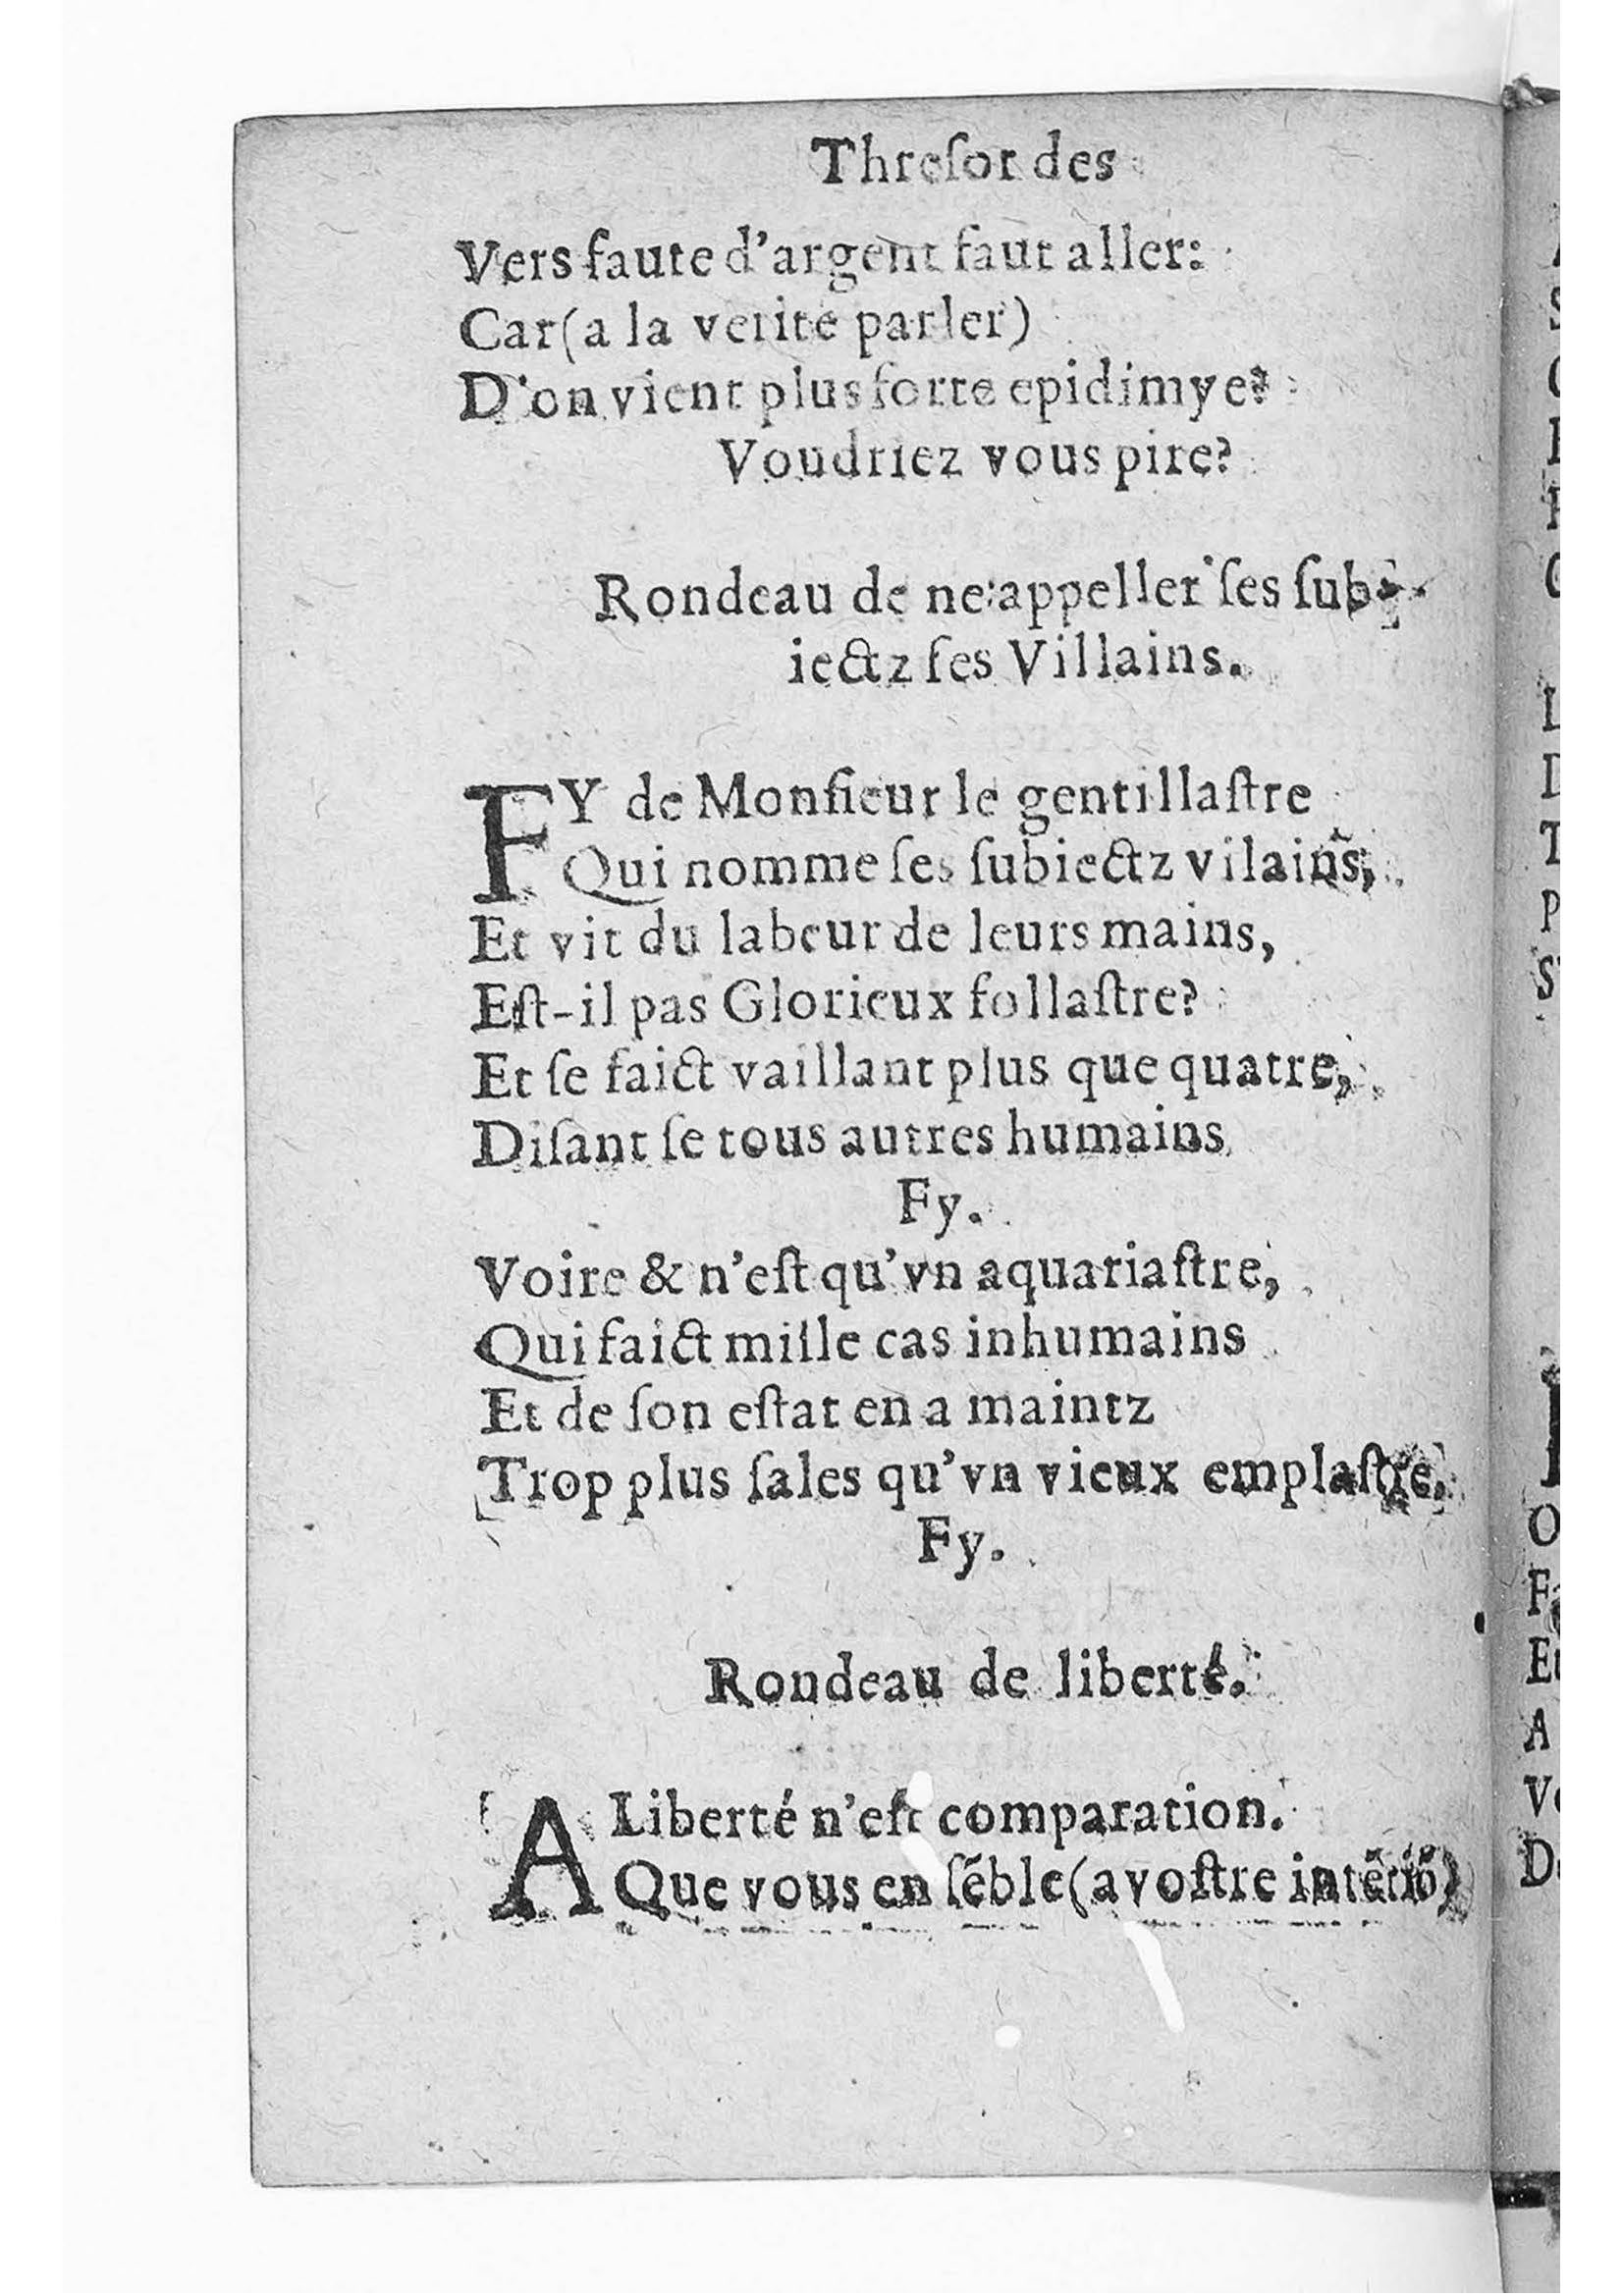 Threſor des
Vers faute d'argent faut aller:
Car (a la verité parler)
D'on vient plus forte epidimye?
Voudriez vous pire?
Rondeau de ne appeller ſes ſub-
iectz ſes Villains.
FY de Monſieur le gentillaſtre
Qui nomme ſes ſubiectz vilains,
Et vit du labeur de leurs mains,
Eſt-il pas Glorieux follaſtre?
Et ſe faict vaillant plus que quatre,
Diſant ſe tous autres humains
Fy.
Voire & n'eſt qu'vn aquariaſtre,
Qui faict mille cas inhumains
Et de ſon eſtat en a maintz
Trop plus ſales qu'vn vieux emplaſtre.
Fy.
Rondeau de liberté.
A Liberté n'eſt comparation.
Que vous en ſẽble (a voſtre intẽtiõ)